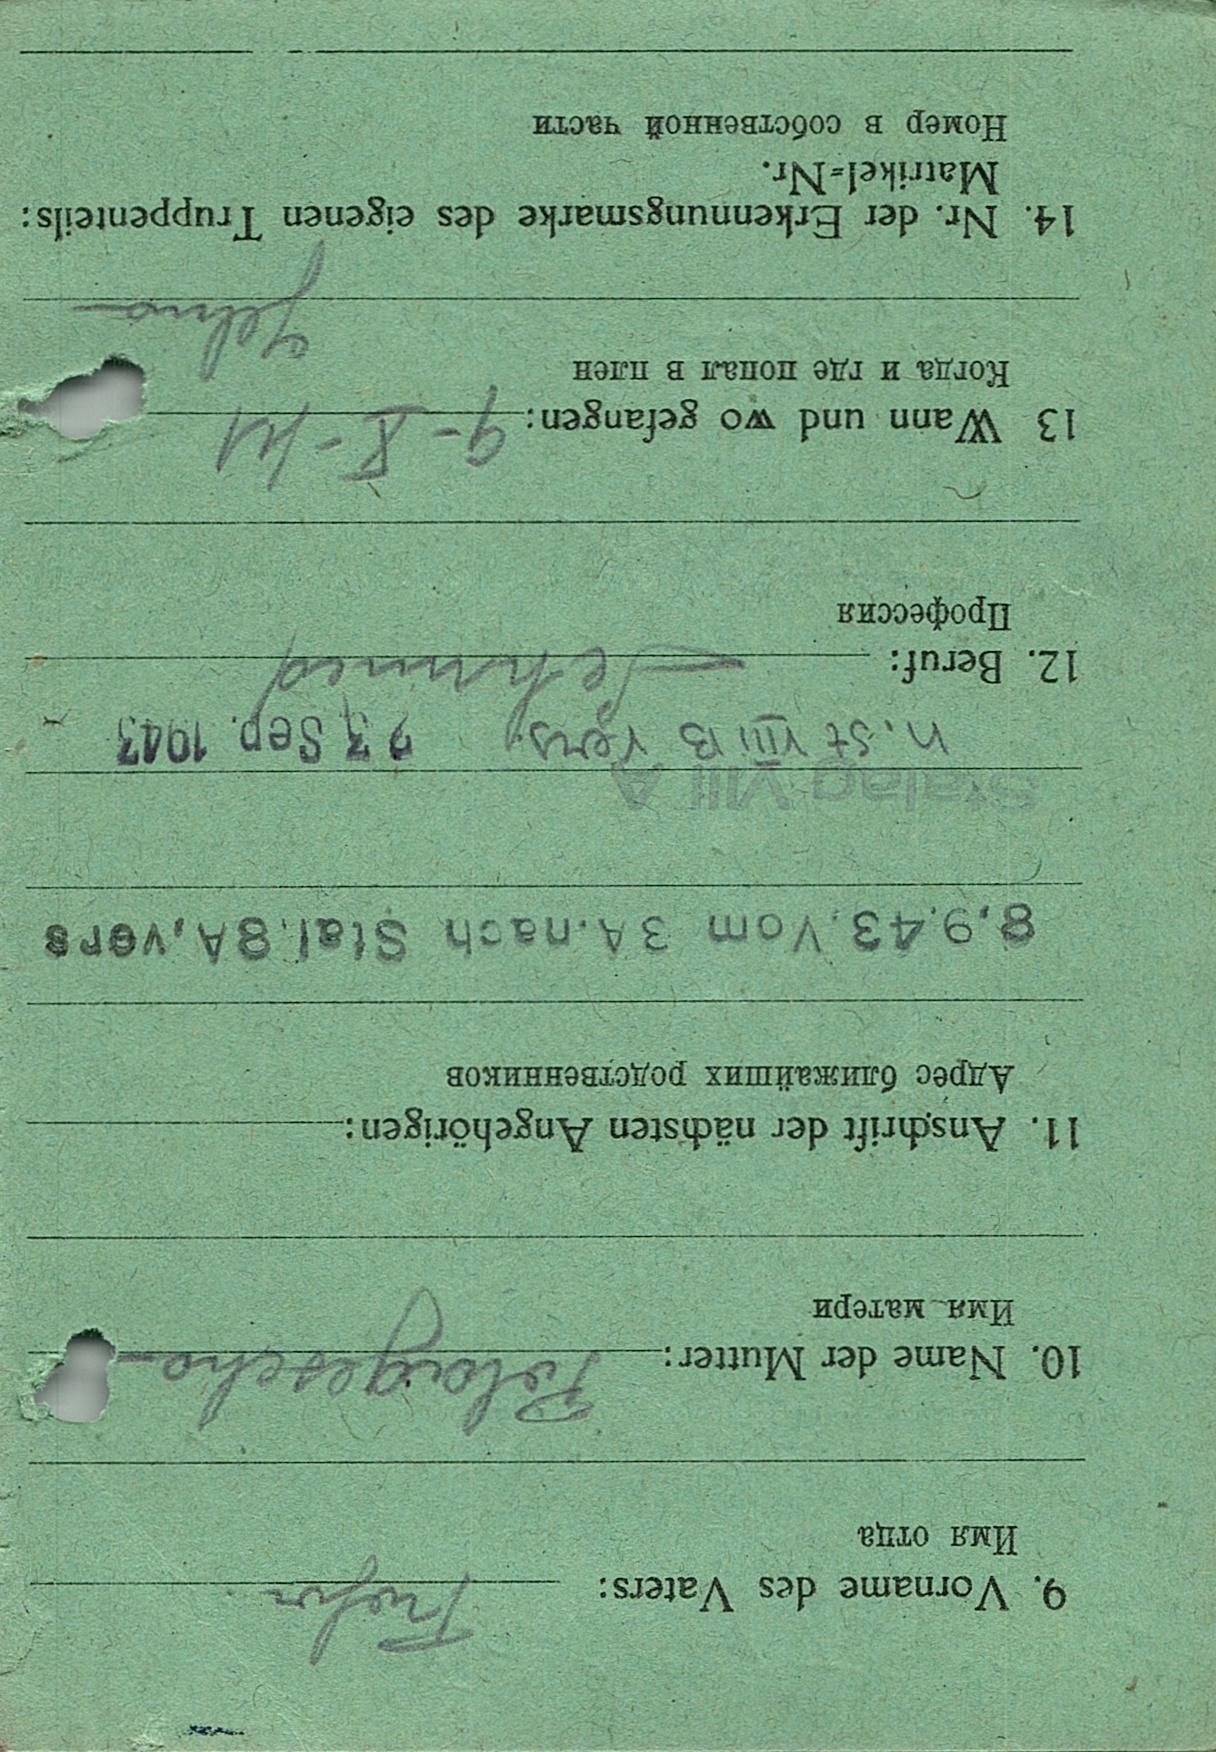 9. Vorname des Vaters:
Имя отца
10. Name der Mutter:
Имя матери
11. Anschrift der nächsten Angehörigen:
Адрес ближайших родственников
8.9.43. Vom 3A. nach Stal. 8A, vers
Stalag VIII A
n. St VIII B vers. 23. Sep. 1943
12. Beruf:
Профессия
13 Wann und wo gefangen: 9-X-41
Когда и где попал в плен
14. Nr. der Erkennungsmarke des eigenen Truppenteils:
Matrikel=Nr.
Номер в собственной части